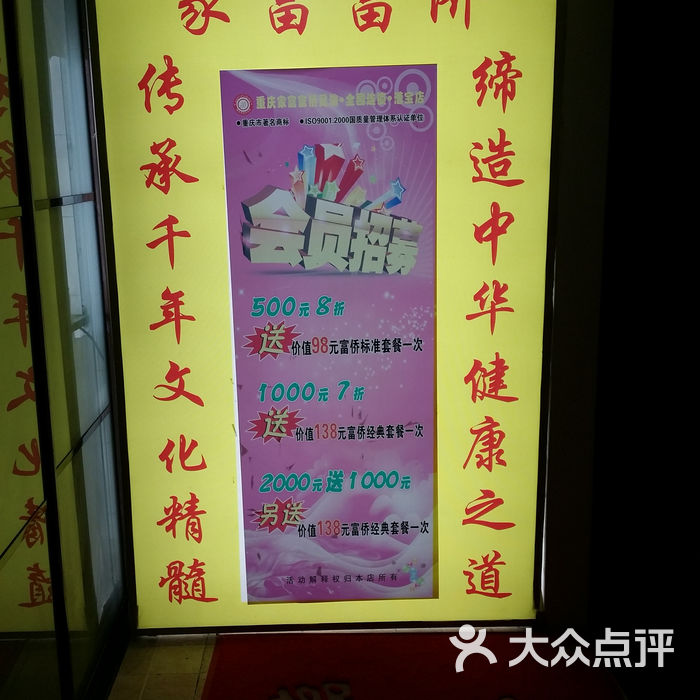 家富富所
传承千年文化精髓
缔造中华健康之道
重庆家富富侨
全国连锁
店
●重庆市著名商标 ●ISO9001:2000国质量管理体系认证单位
会员招募
500元8折
送 价值98元富侨标准套餐一次
1000元7折
送 价值138元富侨经典套餐一次
2000元送1000元
另送 价值138元富侨经典套餐一次
活动解释权归本店所有
大众点评